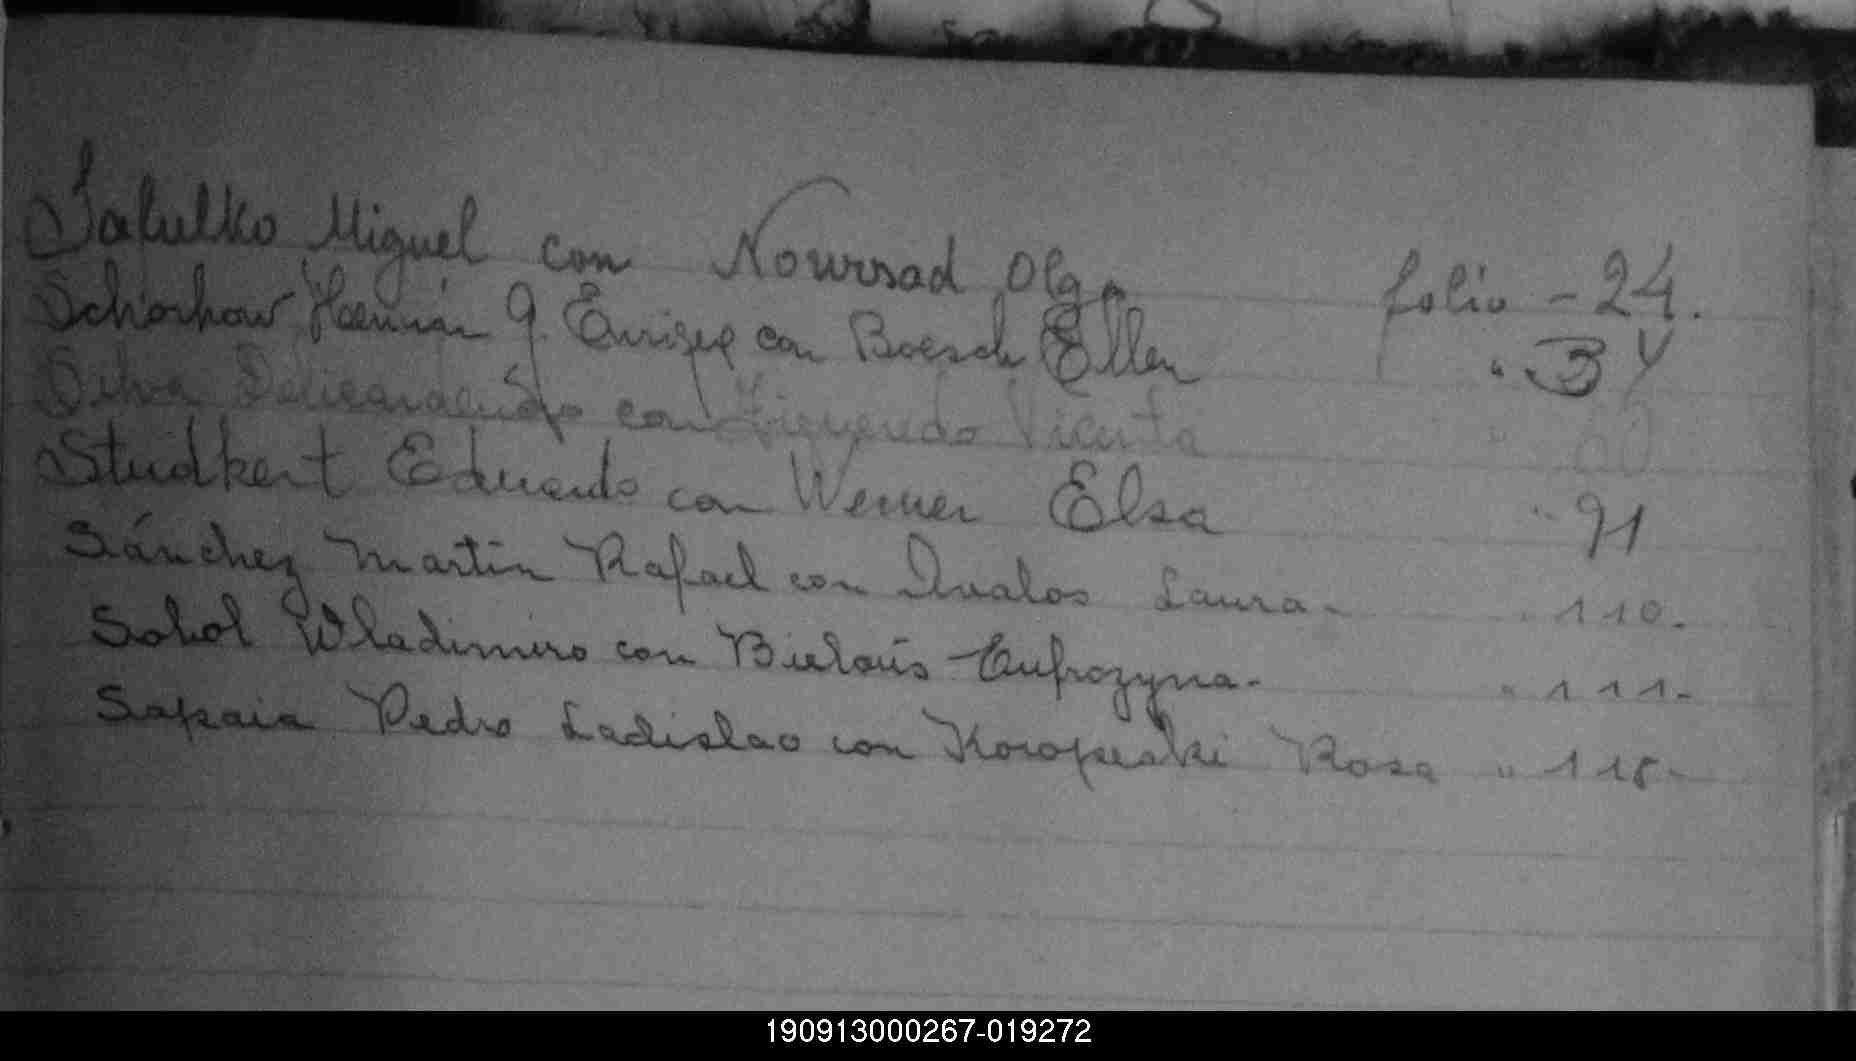 Safulko Miguel con Nowrsad Olga folio - 24.
Schorkow Hernán G. Enrique con Boesch Ellen " 34
Silva con Figueredo Vicenta " 60
Studkert Eduardo con Werner Elsa " 91
Sánchez Martin Rafael con Avalos Laura - " 110.
Sokol Wladimiro con Bielous Eufrozyna - " 111 -
Sapaia Pedro Ladislao con Koropeski Rosa " 118 -
190913000267-019272